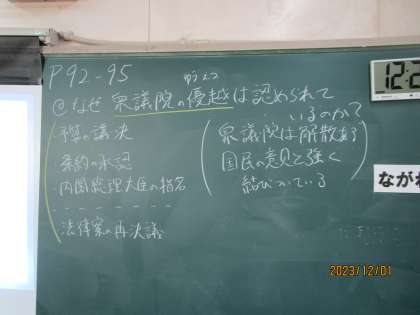 P92-95
ゆうえつ
@なぜ 衆議院の優越は認められて
いるのか?
予算の議決
条約の承認
内閣総理大臣の指名
法律案の再決議
衆議院は解散ある
国民の意見と強く
結びついている
12:2
なが
2023/12/01